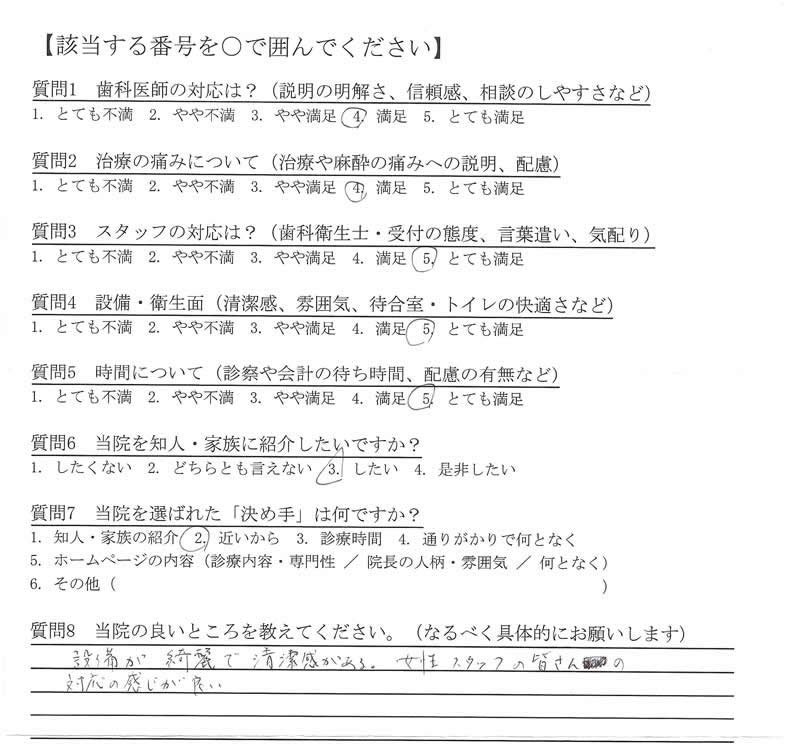 【該当する番号を○で囲んでください】
質問1 歯科医師の対応は？（説明の明解さ、信頼感、相談のしやすさなど）
1. とても不満 2. やや不満 3. やや満足 4. 満足 5. とても満足
質問2 治療の痛みについて（治療や麻酔の痛みへの説明、配慮）
1. とても不満 2. やや不満 3. やや満足 4. 満足 5. とても満足
質問3 スタッフの対応は？（歯科衛生士・受付の態度、言葉遣い、気配り）
1. とても不満 2. やや不満 3. やや満足 4. 満足 5. とても満足
質問4 設備・衛生面（清潔感、雰囲気、待合室・トイレの快適さなど）
1. とても不満 2. やや不満 3. やや満足 4. 満足 5. とても満足
質問5 時間について（診察や会計の待ち時間、配慮の有無など）
1. とても不満 2. やや不満 3. やや満足 4. 満足 5. とても満足
質問6 当院を知人・家族に紹介したいですか？
1. したくない 2. どちらとも言えない 3. したい 4. 是非したい
質問7 当院を選ばれた「決め手」は何ですか？
1. 知人・家族の紹介 2. 近いから 3. 診療時間 4. 通りがかりで何となく
5. ホームページの内容（診療内容・専門性 ／ 院長の人柄・雰囲気 ／ 何となく）
6. その他（ ）
質問8 当院の良いところを教えてください。（なるべく具体的にお願いします）
設備が 綺麗で 清潔感がある。 女性 スタッフの皆さんの
対応の感じが良い